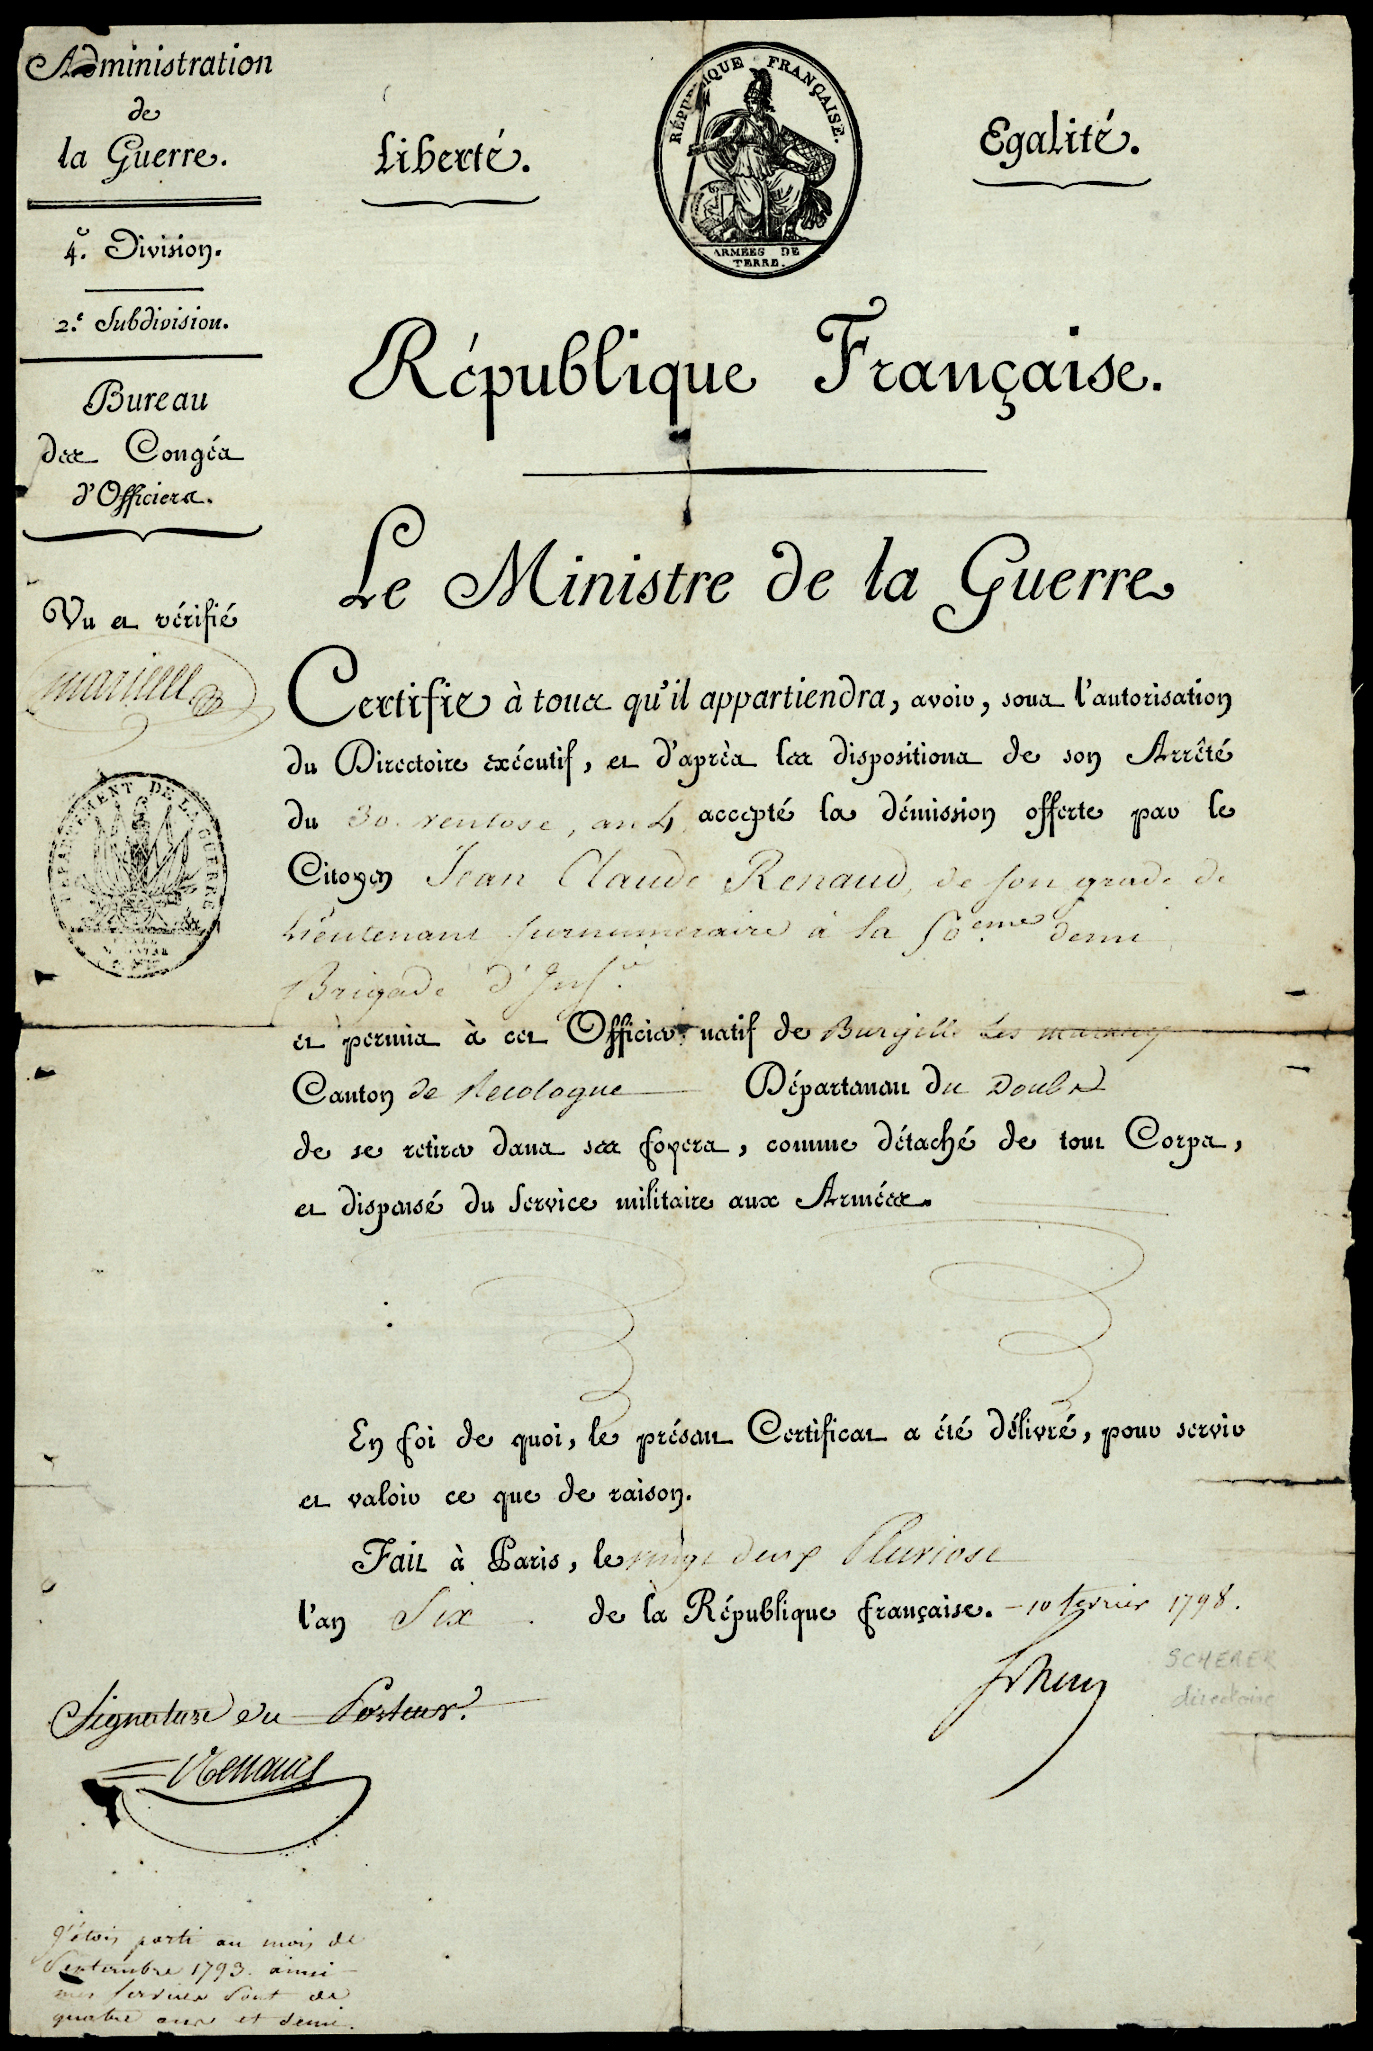 Administration
de
la Guerre.
4.e Division.
2.e Subdivision.
Bureau
des Congés
d'Officiers.
Vu et vérifié
DÉPARTEMENT DE LA GUERRE
Liberté.
RÉPUBLIQUE FRANÇAISE.
ARMÉES DE
TERRE.
Egalité.
République Française.
Le Ministre de la Guerre
Certifie à tous qu'il appartiendra, avoir, sous l'autorisation
du Directoire exécutif, et d'après les dispositions de son Arrêté
du 30 ventose, an 4, accepté la démission offerte par le
Citoyen Jean Claude Renaud, de son grade de
Lieutenant surnumeraire à la 50eme demi
Brigade d'Inf.ie
et permis à cet Officier natif de Burgille les
Canton de Recologne Département du Doubs
de se retirer dans ses foyers, comme détaché de tout Corps,
et dispensé du Service militaire aux Armées.
En foi de quoi, le présent Certificat a été délivré, pour servir
et valoir ce que de raison.
Fait à Paris, le vingt deux Pluviose
l'an Six . de la République française. - 10 fevrier 1798.
SCHERER
directoire
Signature du Porteur.
Renaud
J'étois parti au mois de
Septembre 1793. ainsi
mes services sont de
quatre ans et demi.